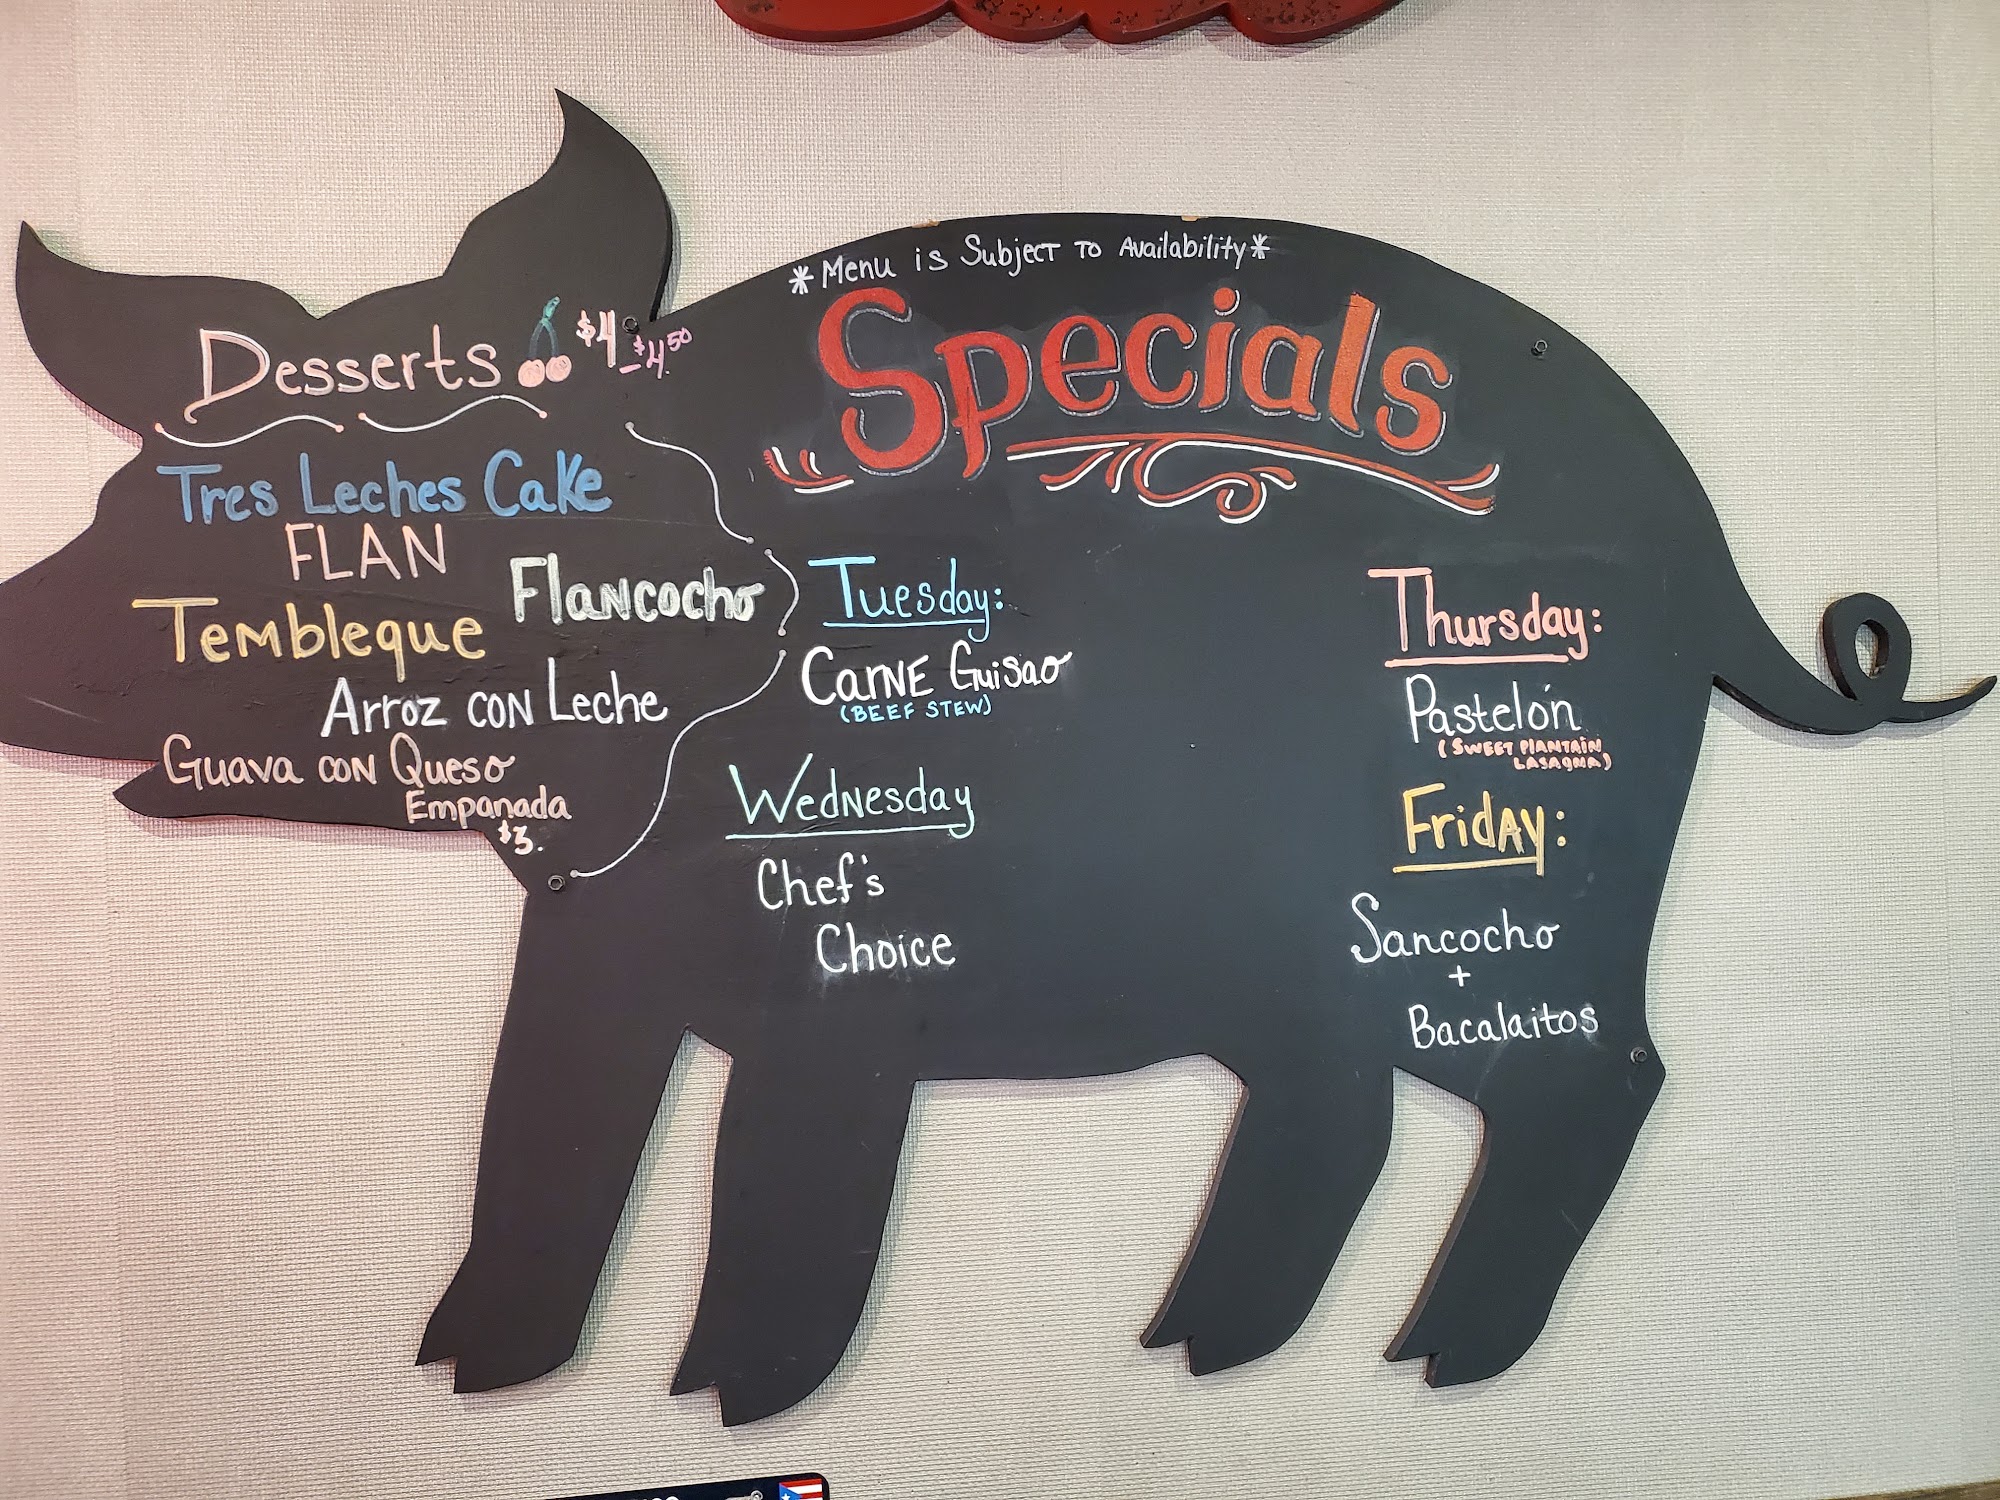 *Menu is Subject to Availability*
Specials
Desserts $4 - $4.50
Tres Leches Cake
FLAN
Flancocho
Tembleque
Arroz con Leche
Guava con Queso
Empanada
$3.
Tuesday:
Carne Guisao
(BEEF STEW)
Wednesday
Chef's
Choice
Thursday:
Pastelón
(SWEET PLANTAIN
LASAGNA)
Friday:
Sancocho
+
Bacalaitos